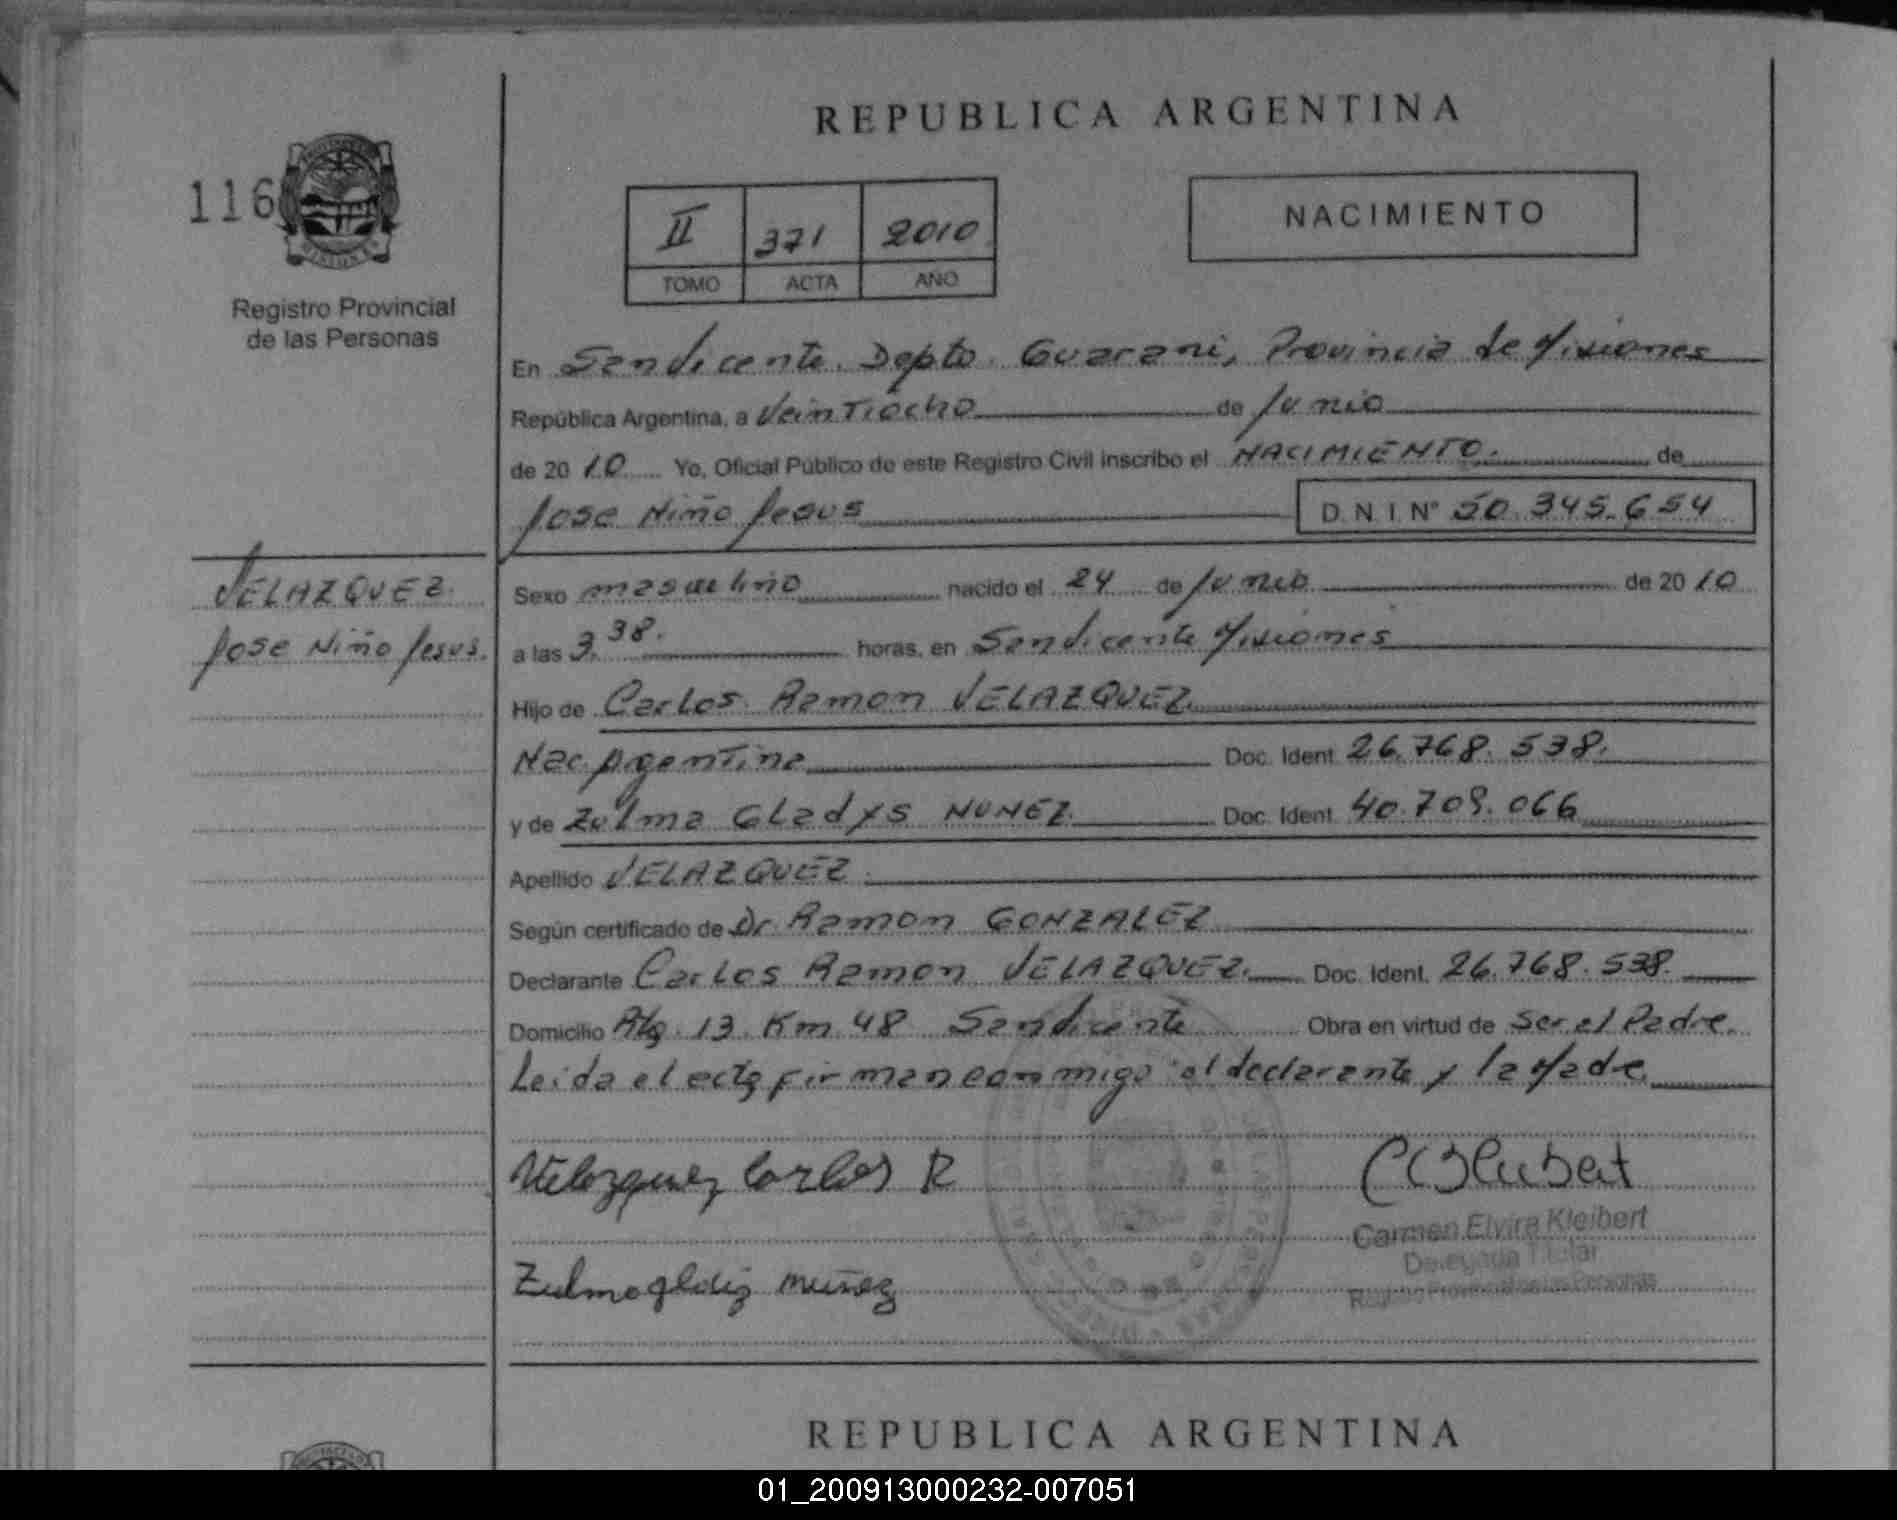 REPUBLICA ARGENTINA
116
II 371 2010
TOMO ACTA AÑO
NACIMIENTO
Registro Provincial
de las Personas
En Sandicente. Depto. Guarani, Provincia de Misiones
República Argentina, a VeinTiocho de Junio
de 2010 Yo, Oficial Público de este Registro Civil inscribo el NACIMIENTO. de
Jose Niño Jesus D.N.I. N° 50.345.654
VELAZQUEZ.
Jose Niño Jesus.
Sexo masculino nacido el 24 de Junio de 2010
a las 3.38. horas, en Sandicente Misiones
Hijo de Carlos Ramon VELAZQUEZ
Nac. Argentina Doc. Ident. 26.768.538.
y de Zulma GLadys NUNEZ. Doc. Ident. 40.709.066
Apellido VELAZQUEZ.
Según certificado de Dr. Ramon GONZALEZ
Declarante Carlos Ramon VELAZQUEZ. Doc. Ident. 26.768.538.
Domicilio Rtg. 13 Km 48 Sandicente Obra en virtud de Ser el Padre.
Leida el acta firman conmigo el declarante y la Madre.
Velazquez Carlos R
Carmen Elvira Kleibert
Delegada Titular
Registro Provincial de las Personas
Zulma gladiz muñez
REPUBLICA ARGENTINA
01_200913000232-007051